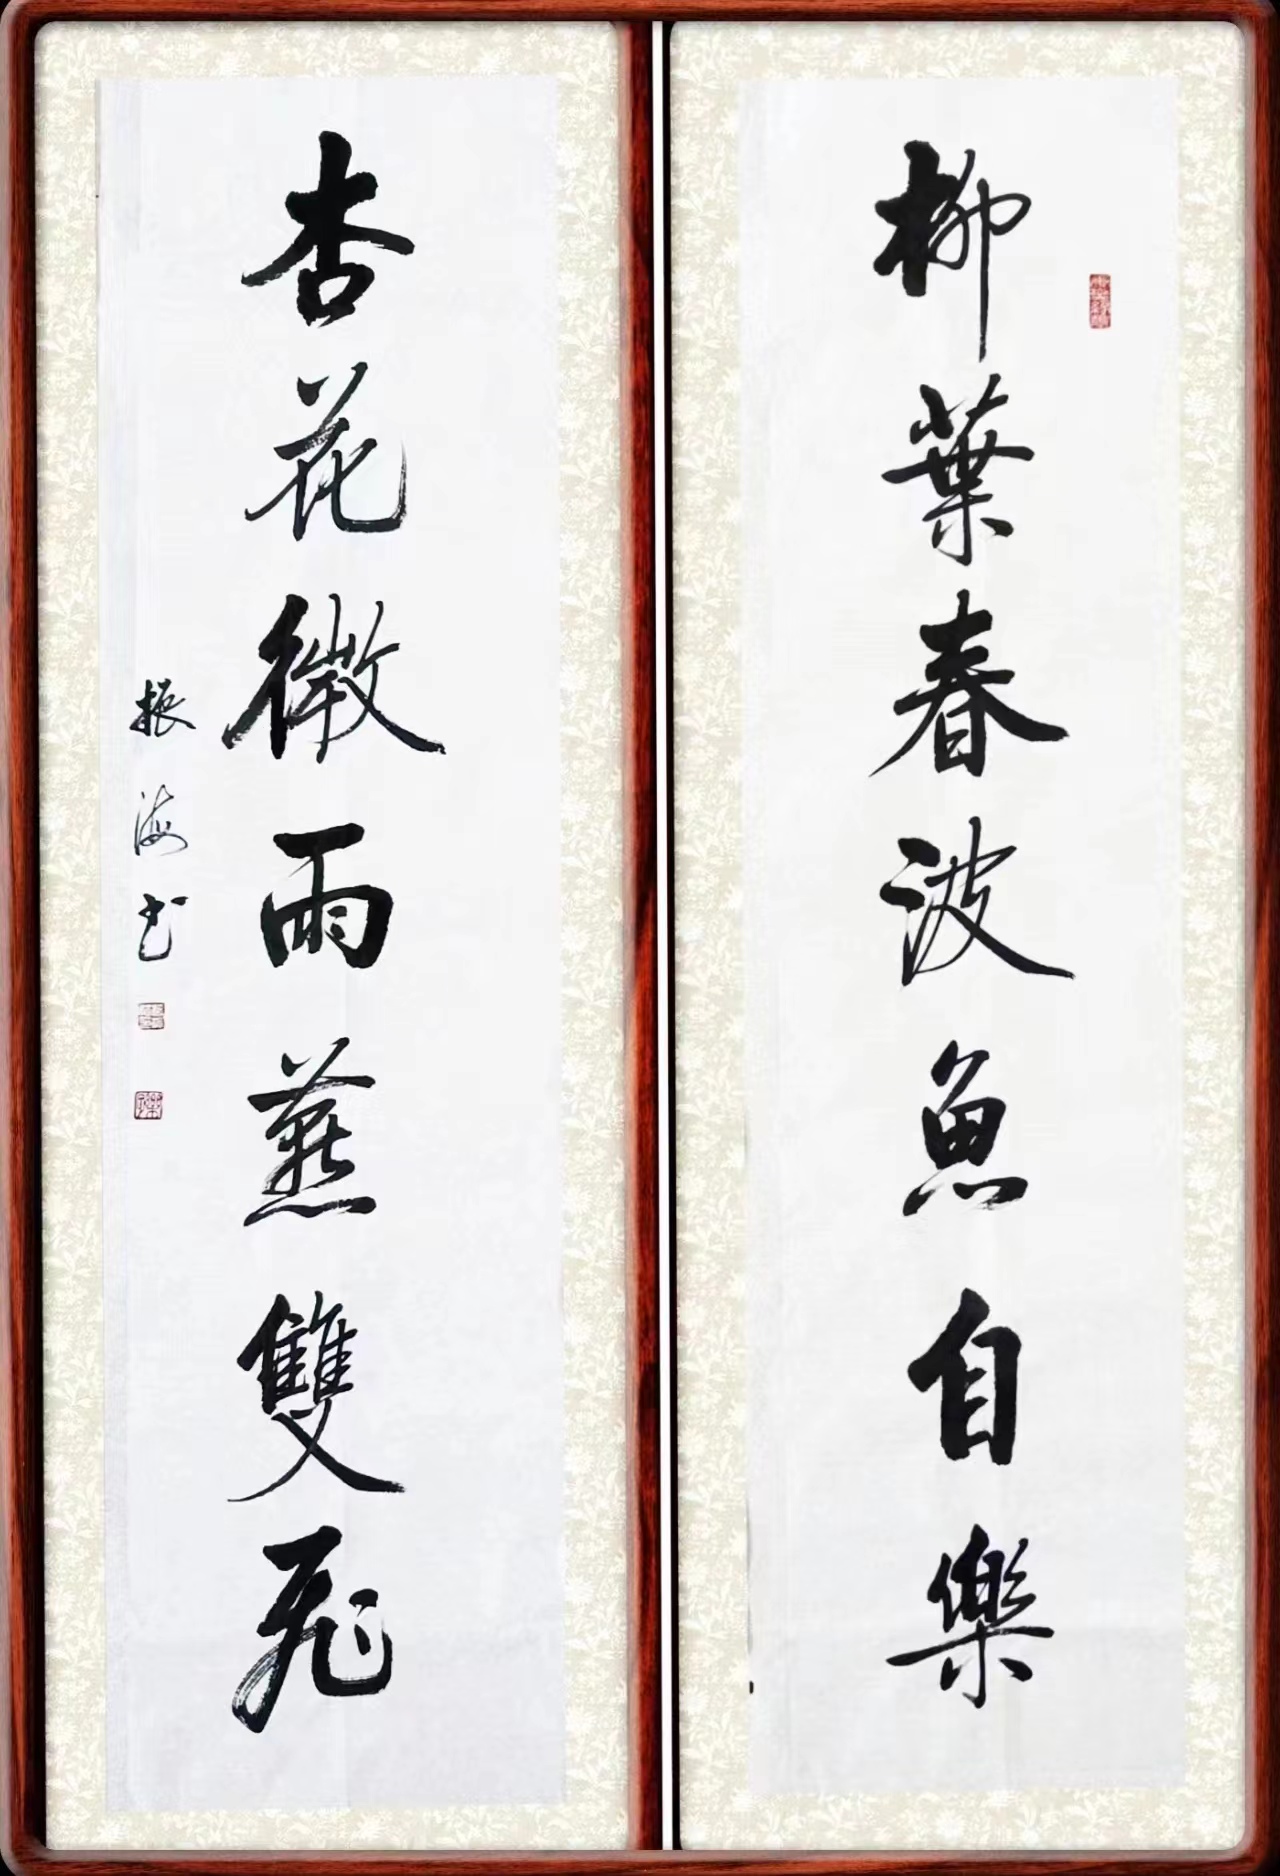 柳葉春波魚自樂
杏花微雨燕雙飛
振海书